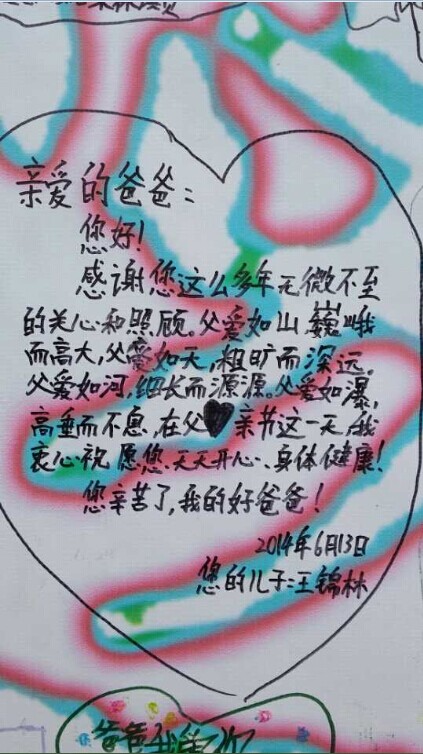 亲爱的爸爸：
您好！
感谢您这么多年无微不至
的关心和照顾。父爱如山，巍峨
而高大，父爱如天，粗旷而深远。
父爱如河，细长而源源。父爱如瀑，
高垂而不息，在父亲节这一天，我
衷心祝愿您，天天开心、身体健康！
您辛苦了，我的好爸爸！
2014年6月13日
您的儿子：王锦林
爸爸我